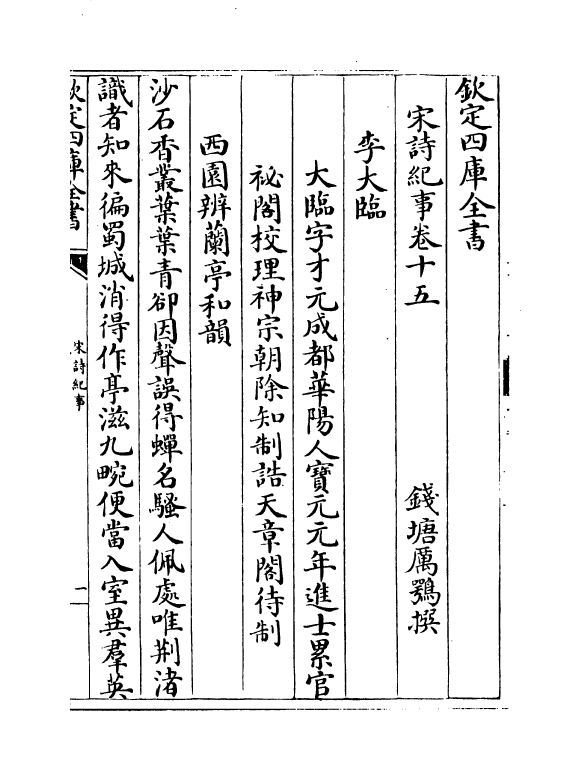 欽定四庫全書
宋詩紀事卷十五
錢塘厲鶚撰
李大臨
大臨字才元成都華陽人寶元元年進士累官
祕閣校理神宗朝除知制誥天章閣待制
西園辨蘭亭和韻
沙石香叢葉葉青卻因聲誤得蟬名騷人佩處唯荆渚
識者知來徧蜀城消得作亭滋九畹便當入室異羣英
欽定四庫全書
宋詩紀事